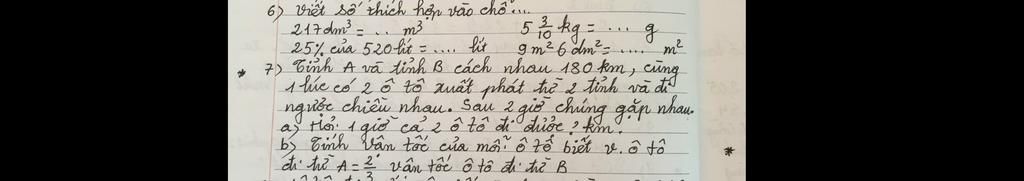 6) Viết số thích hợp vào chỗ ...
217dm³ = .. m³ 5 3/10 kg = ... g
25% của 520 lít = .... lít 9m² 6dm² = .... m²
* 7) Tỉnh A và tỉnh B cách nhau 180 km, cùng
1 lúc có 2 ô tô xuất phát từ 2 tỉnh và đi
ngược chiều nhau. Sau 2 giờ chúng gặp nhau.
a) Hỏi 1 giờ cả 2 ô tô đi được ? km.
b) Tính vân tốc của mỗi ô tô biết v. ô tô *
đi từ A = 2/3 vân tốc ô tô đi từ B